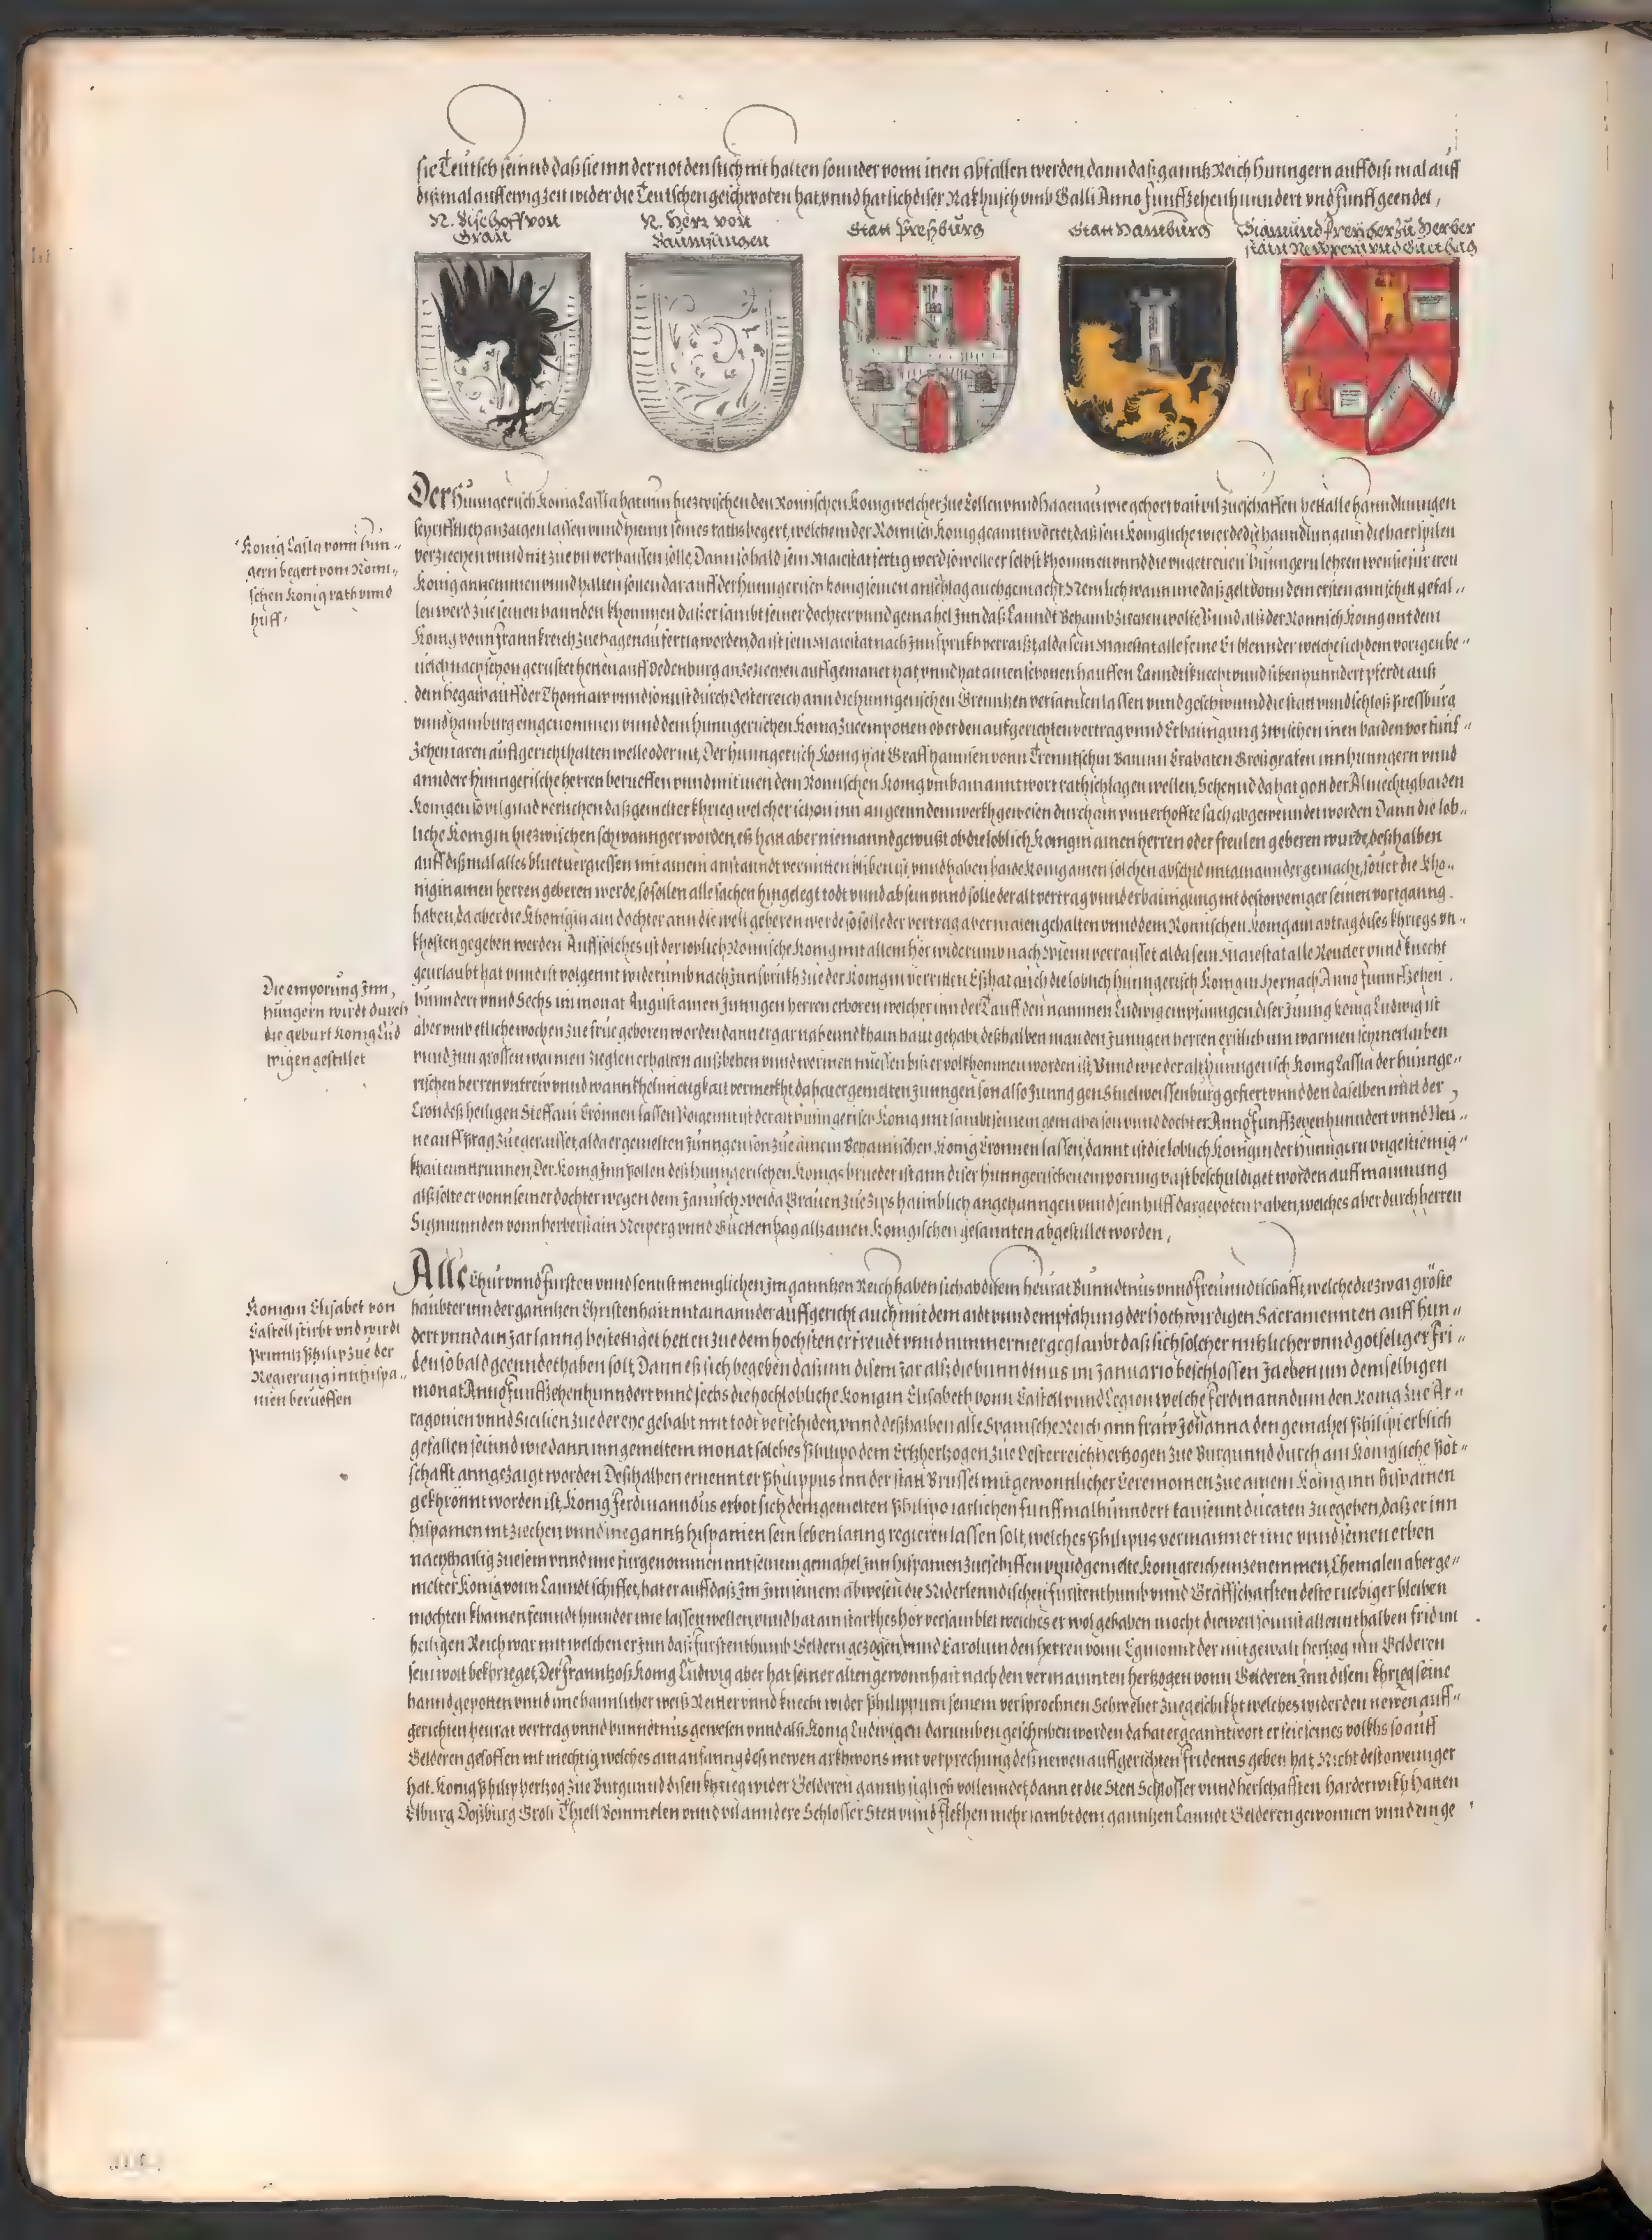 sie Teutsch seinnd daß sie inn der not den stich nit halten sounder vonn inen abfallen werden, dann daß ganntz Reich Hunngern auff diß mal auff
dißmal auff ewig zeit wider die Teutschen geschworen hat, vnnd hat sich diser Rakhusch vmb Galli Anno Funffzehenhunndert vnd funff geendet,
N. Bischoff von
Gran
N. Herr von
Statt Preßburg
Statt Hamburg
Sigmund Freyherr zu Herber
stain Neyperg vnd Guetthag
König Lassla vonn Hun-
gern begert vom Römi-
schen König rath vnnd
hilff.
Der Hunngerisch König Lassla hat nun hiezwischen den Römischen König welcher zue Cöllen vnnd Hagenau wie gehört vast vil zueschaffen het alle hanndlungen
schrifftlich anzaigen lassen vnnd hierin seines raths begert, welchem der Römisch König geanntwortet, daß sein Königliche wierde die hanndlung
verziechen vnnd nit zue vil verbausen solle, Dann so bald sein Maiestat fertig werd so welle er selbst khommen vnnd die vngetreuen Hunngern lehren wie sie iren
König annemen vnnd halten sollen darauff der Hunngerisch König seinen anschlag auch gemacht, Nemlich wann nun daß gelt vonn dem ersten annschnit gefal-
len werd zue seinen hannden khommen daß er sambt seiner dochter vnnd gemahel Inn daß Lanndt Behamb ziechen wolle Vnnd als der Römisch König mit dem
König vonn Frannkreich zue Hagenau fertig worden, da ist sein Maiestat nach Innsprukh verraist, alda sein Maiestat alle seine Erblennder welche sich dem vorigen be-
uelch nach schon gerüstet hetten auff Oedenburg anzeziechen auffgemanet hat, vnnd hat ainen schönen hauffen Lanndtsknecht vnnd siben hunndert pferdt auß
dem begair auff der Thonnaw vnnd sonnst durch Oesterreich ann die hunngerischen Grennitzen versamlen lassen vnnd geschwinnd die statt vnnd schloß Pressburg
vnnd Hamburg eingenommen vnnd dem Hunngerischen König zue empotten ober den aufgerichten vertrag vnnd Erbainigung zwischen inen baiden vor funf-
zehen iaren auffgericht halten welle oder nit, Der Hunngerisch König hat Graff Hannsen vonn Trenntschin Bann in Crabaten Großgrafen inn Hunngern vnnd
anndere Hunngerische herren berueffen vnnd mit inen dem Römischen König vmb ain anntwort rathschlagen wellen, Sehennd da hat gott der Almechtig baiden
Königen so vil gnad verlichen daß gemelter khrieg welcher schon inn angeenndem werkh gewesen durch ain vnuerhoffte sach abgewendet worden Dann die löb-
liche Königin hiezwischen schwannger worden, eß hatt aber niemannd gewußt ob die loblich Königin ainen herren oder freulen geberen wurde, deßhalben
auff dißmal alles bluetuergiessen mit ainem anstanndt vermitten bliben ist, vnnd haben baide König ainen solchen abschid mitainannder gemacht, souer die Khö-
nigin ainen herren geberen werde, so sollen alle sachen hingelegt todt vnnd ab sein vnnd solle der alt vertrag vnnd erbainigung nit destoweniger seinen vortganng
haben, da aber die Khönigin ain dochter ann die welt geberen werde so solle der vertrag aber maien gehalten vnnd dem Römischen König ain abtrag dises khriegs vn-
khosten gegeben werden Auff solches ist der loblich Römische König mit allem hör widerumb nach Wienn verraiset alda sein Maiestat alle Reutter vnnd knecht
geurlaubt hat vnnd ist volgennt widerumb nach Innsprukh zue der Königin verritten Eß hat auch die loblich Hunngerisch Königin hernach Anno Funnffzehen
Die empörung Inn
Hungern wirdt durch
die geburt König Lud
wigen gestillet
hunndert vnnd Sechs im monat August ainen Junngen herren erboren welcher inn der Tauff den nammen Ludwig empfanngen, diser Junng König Ludwig ist
aber vmb etliche wochen zue frue geboren worden dann er gar nahennd khain haut gehabt, deßhalben man den Junngen herren erstlich inn warmen schmerlauben
vnnd Inn grossen warmen Zieglen erhalten außbehen vnnd wermen muessen biß er volkhommen worden ist, Vnnd wie der alt Hunngerisch König Lassla der Hunnge-
rischen herren vntrew vnnd wannkhelmietigkait vermerkht, da hat er gemelten Junngen son also Junng gen Stuelweissenburg gefiert vnnd den daselben mit der
Cron deß heiligen Steffani Crönnen lassen Volgennt ist der alt Hunngerisch König mit sambt seinem gemahel son vnnd dochter Anno Funffzehenhunndert vnnd Neu-
ne auff Prag zue geraisset, alda er gemelten Junngen son zue ainem Behamischen König Crönnen lassen, dannt ist die loblich Königin der Hunngern vngestiemig-
khait enntrunnen, Der König Inn Pollen deß Hunngerischen Königs brueder ist ann diser Hunngerischen empörung vast beschuldiget worden auff mainung
alß solte er vonn seiner dochter wegen dem Janusch Weida Grauen zue Zips haimblich angehanngen vnnd sein hilff dargepoten haben, welches aber durch herren
Sigmunnden vonn Herberstain Neiperg vnnd Guettenhag alß ainen Königischen gesannten abgestillet worden,
Königin Elisabet von
Castell stirbt vnd wirdt
Printz Philip zue der
Regierung inn Hispa-
nien berueffen
Alle Chur vnnd Fursten vnnd sonnst meniglichen Im ganntzen Reich haben sich ab disem heurat Bundtnus vnnd Freunndtschafft, welche die zwai gröste
haubter inn der ganntzen Christenhait mitainannder auffgericht auch mit dem aidt vnnd empfahung der Hochwirdigen Sacramennten auff hun-
dert vnnd ain Jar lanng bestettiget hetten zue dem höchsten erfreudt vnnd nimmermer geglaubt daß sich solcher nutzlicher vnnd gotseliger Fri-
den so bald geenndet haben solt, Dann eß sich begeben daß inn disem Jar alß die bunndtnus im Januario beschlossen Ja eben inn demselbigen
monat Anno Funffzehenhunndert vnnd sechs die hochlobliche Königin Elisabeth vonn Castell vnnd Legion welche Ferdinanndum den König zue Ar-
ragonien vnnd Sicilien zue der ehe gehabt mit todt verschiden, vnnd deßhalben alle Spanische Reich ann fraw Johanna den gemahel Philipi erblich
gefallen seinnd wie dann inn gemeltem monat solches Philipo dem Ertzhertzogen zue Oesterreich Hertzogen zue Burgunnd durch ain Königliche Pot-
schafft anngezaigt worden Deßhalben ernennter Philippus Inn der statt Brussel mit gewonnlicher Ceremonien zue ainem König inn Hispanien
gekhrönnt worden ist, König Ferdinanndus erbot sich dem gemelten Philipo iarlichen funffmalhunndert tausennt ducaten zuegeben, daß er inn
Hispanien nit ziechen vnnd ine ganntz Hispanien sein leben lanng regieren lassen solt, welches Philipus vermainnet ime vnnd seinen erben
nachthailig zuesein vnnd ime fürgenommen mit seinem gemahel Inn Hispanien zueschiffen vnnd gemelte Königreich einzenemmen, Ehemalen aber ge-
melter König vonn Lanndt schiffet, hat er auff daß Im Inn seinem abwesen die Niderlenndischen fürstenthumb vnnd Graffschafften deste ruebiger bleiben
möchten khainen feinndt hinnder ime lassen wellen, vnnd hat ain starkhes hör versamblet welches er wol gehaben mocht dieweil sonnst allennthalben frid im
heiligen Reich war mit welchem er Inn daß fürstenthumb Geldern gezogen, vnnd Carolum den herren vonn Egmonnt der mit gewalt hertzog inn Gelderen
sein wolt bekhrieget, Der Franntzoß König Ludwig aber hat seiner alten gewonnhait nach den vermainnten hertzogen vonn Gelderen Inn disem khrieg seine
hannd gepotten vnnd ime haimlicher weiß Reitter vnnd knecht wider Philippum seinem versprochnen Schweher zuegeschikht welches wider den newen auff-
gerichten heurat vertrag vnnd bunndtnus gewesen vnnd alß König Ludwigen darumben geschriben worden da hat er geanntwort er seie seines volkhs so auff
Gelderen geloffen nit mechtig, welches ain anfanng deß newen arkhwons mit verprechung deß newen auffgerichten fridenns geben hat, Nicht destoweniger
hat König Philip hertzog zue Burgunnd disen khrieg wider Gelderen ganntz siglich vollenndet, dann er die Stett Schlösser vnnd herschafften Harderwikh Hatten
Elburg Doßburg Groli Thiell Bommelen vnnd vil anndere Schlösser Stett vnnd flekhen mehr sambt dem ganntzen Lanndt Gelderen gewonnen vnnd einge